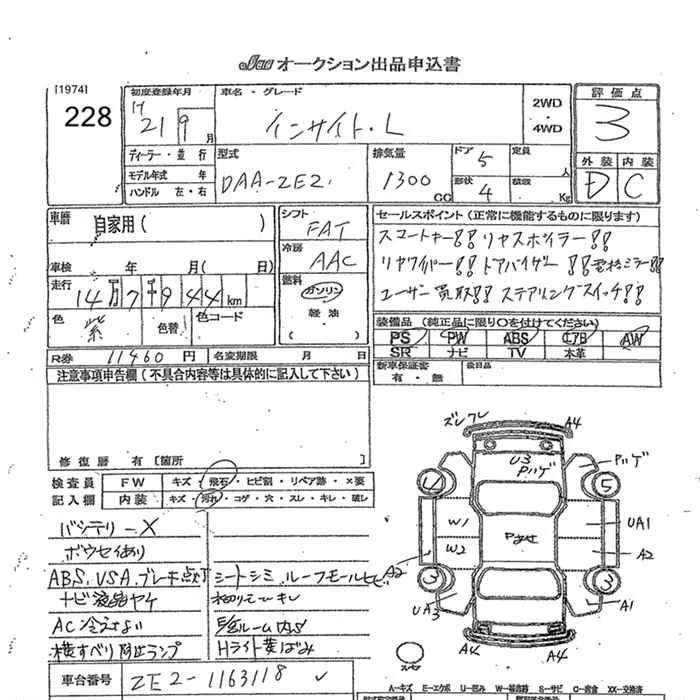 Jau オークション出品申込書
[1974]
228
初度登録年月
H 21 9 月
車名・グレード
インサイト・L
2WD
・
4WD
評価点
3
ディーラー・並行
モデル年式 年
ハンドル 左・右
型式
DAA-ZE2
排気量
1300
CC
ドア 5
形状 4
定員
人
積載
Kg
外装 内装
D C
車歴
自家用( )
シフト
FAT
冷房
AAC
燃料
ガソリン
・
軽油
車検 年 月( 日)
走行
14万7千944km
色 紫
色替
色コード
R券 11460 円
名変期限 月 日
セールスポイント(正常に機能するものに限ります)
スマートキー!! リヤスポイラー!!
リヤワイパー!! ドアバイザー!! 電格ミラー!!
ユーザー買取!! ステアリングスイッチ!!
装備品(純正品に限り○を付けてください)
PS PW ABS エアB AW
SR ナビ TV 本革
新車保証書
有・無
後日品
注意事項申告欄(不具合内容等は具体的に記入して下さい)
修復歴 有 [箇所
検査員
記入欄
FW キズ・飛石・ヒビ割・リペア跡・×要
内装 キズ・汚れ・コゲ・穴・スレ・キレ・破レ
バッテリーX
ボウセイあり
ABS、VSA、ブレーキ点灯
シートシミ ルーフモールヒビ
ナビ液晶ヤケ
AC冷えない
横すべり防止ランプ
Hライト黄ばみ
車台番号 ZE2-1163118
ズレ フレ
A4
A4
U3
ハゲ
ハゲ
4
5
W1
W2
UA1
A2
A2
3
3
UA3
A1
A4
スペア
A-キズ E-エクボ U-凹み W-補修跡 S-サビ C-腐食 XX-交換済